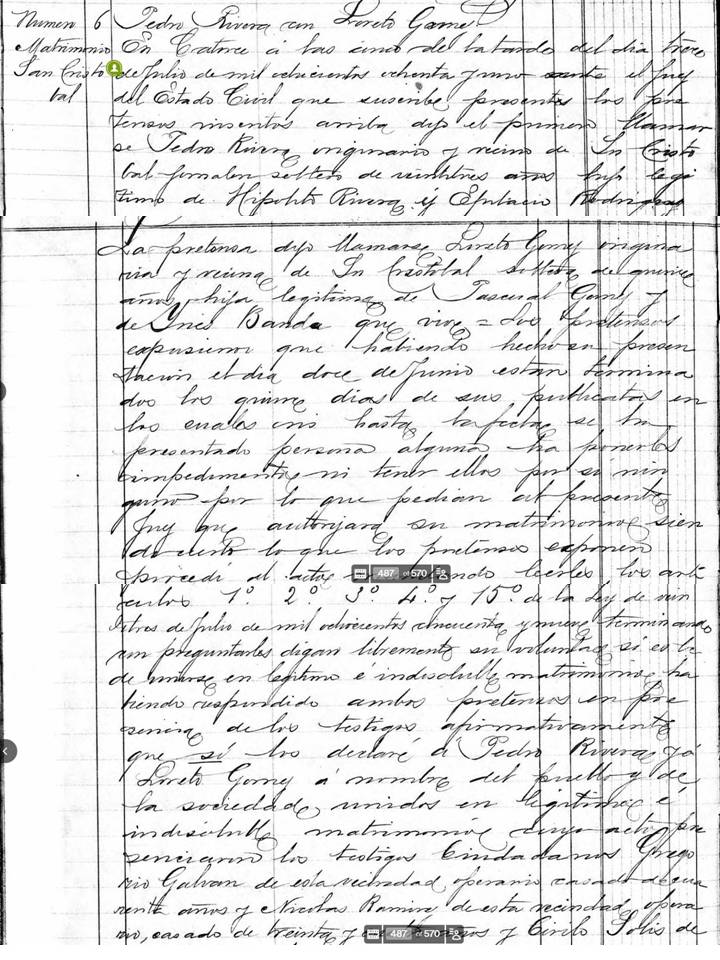 Numero 6 Pedro Rivera con Loreto Gomez
Matrimonio En Catorce á las cinco de la tarde del dia trece
San Cristo de Julio de mil ochocientos ochenta y uno ante el Juez
bal del Estado Civil que suscribe presentes los pre
tensos insertos arriba dijo el primero llamar
se Pedro Rivera originario y vecino de Sn Cristo
bal jornalero soltero de veintitres años hijo legi
timo de Hipolito Rivera y Epitacia Rodriguez
La pretensa dijo llamarse Loreto Gomez origina
ria y vecina de Sn Cristobal soltera de quince
años, hija legitima de Pascual Gomez y
de Ynes Banda que vive = Los pretensos
expusieron que habiendo hecho su presen
tacion el dia doce de Junio estan termina
dos los quince dias de sus publicatas en
los cuales ni hasta la fecha se ha
presentado persona alguna ha ponerles
impedimento ni tener ellos por si nin
guno por lo que pedian al presente
Juez que autorizara su matrimonio sien
do cierto lo que los pretensos exponen
procedi al acto leerles los arti
culos 1º. 2º. 3º. 4º. y 15º. de la Ley de vein
titres de Julio de mil ochocientos cincuenta y nueve terminando
con preguntarles digan libremente su voluntad si es la
de unirse en legitimo é indisoluble matrimonio, ha
biendo respondido ambos pretensos en pre
sencia de los testigos afirmativamente
que sí los declaré á Pedro Rivera y á
Loreto Gomez á nombre del pueblo y de
la sociedad unidos en legitimo é
indisoluble matrimonio cuyo acto pre
senciaron los testigos Ciudadanos Grego
rio Galvan de esta vecindad, operario casado de cua
renta años y Nicolas Ramirez de esta vecindad, opera
rio, casado de treinta y años y Cirilo Solis de
487 of 570
487 of 570